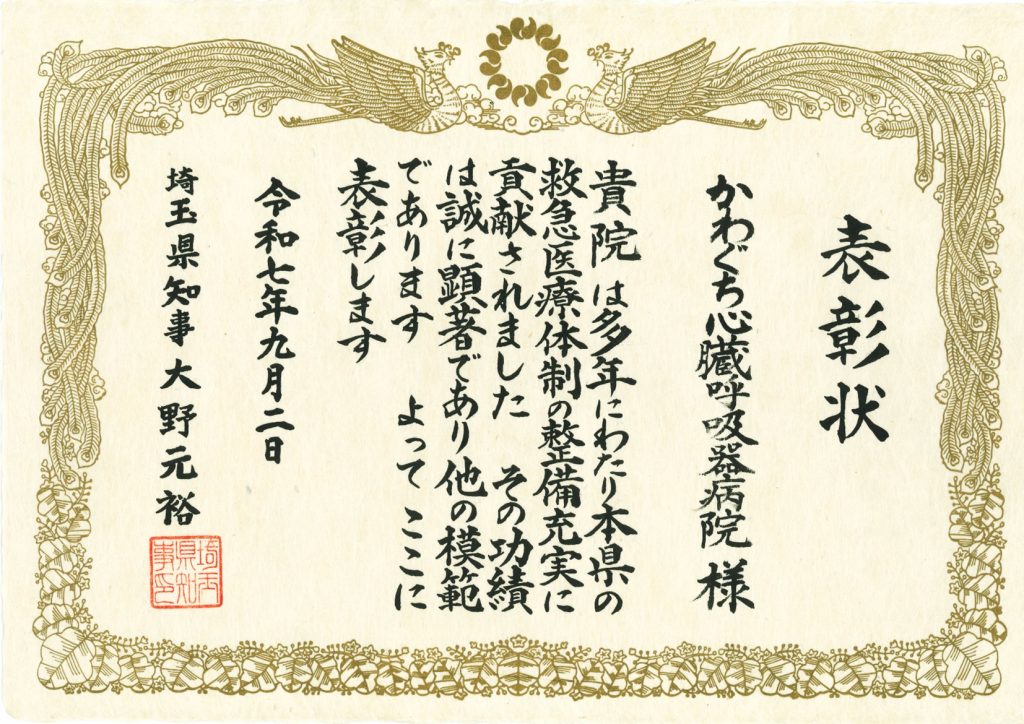 表彰状
かわぐち心臓呼吸器病院 様
貴院は多年にわたり本県の
救急医療体制の整備充実に
貢献されました その功績
は誠に顕著であり他の模範
であります よって ここに
表彰します
令和七年九月二日
埼玉県知事 大野元裕
埼玉
県知
事印